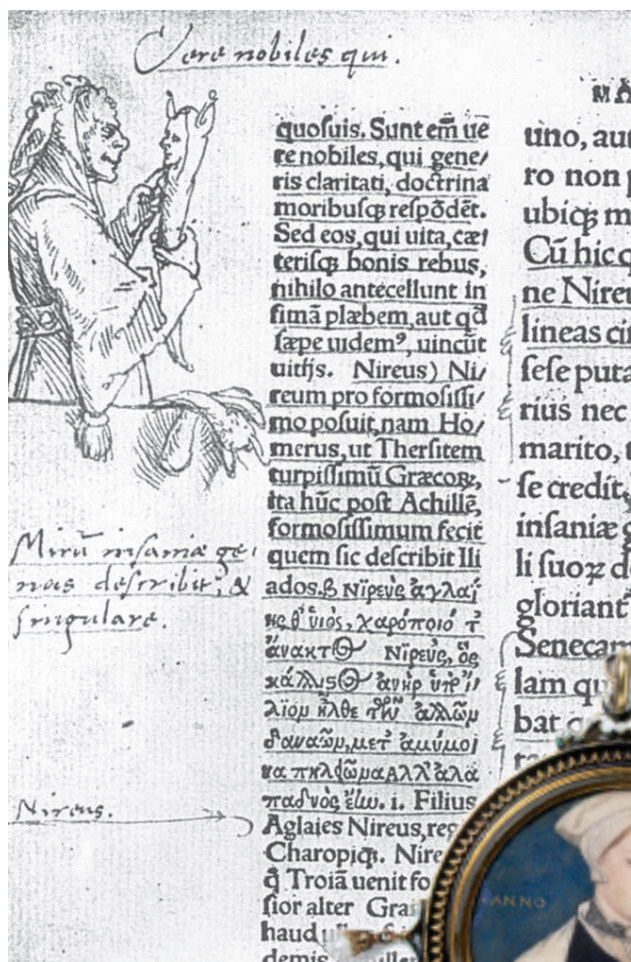 Vere nobiles qui.
quoſuis. Sunt em̄ ue
re nobiles, qui gene⸗
ris claritati, doctrina
moribuſq̃ reſpōdēt.
Sed eos, qui uita, cæt
teriſq̃ bonis rebus,
nihilo antecellunt in
fimā plæbem, aut qđ
ſæpe uidemꝰ, uincūt
uitijs. Nireus) Ni⸗
reum pro formoſiſſi⸗
mo poſuit, nam Ho⸗
merus, ut Therſitem
turpiſſimū Græcoꝝ,
ita hūc poſt Achillē,
formoſiſſimum fecit
quem ſic deſcribit Ili
ados. β Νῖρεὺς ἀγλαί
ης θ' ὑιὸς, χαρόποιό τ'
ἄνακτος Νῖρεὺς, ὃς
κάλλιστος ἀνὴρ ὑπ' ἴ
λιομ ἦλθε τῶν ἄλλωμ
δαναῶμ, μετ' ἀμύμοι
να πηλείωμα Αλλ' ἀλα
παδνὸς ἔην. i. Filius
Aglaies Nireus, reg
Charopiq̃. Nire
q̄ Troiā uenit fo
ſior alter Grai
haud
demis
Mirū insaniæ ge⸗
nus describit, &
singulare.
Nireus.
MA
uno, aut
ro non
ubiq̃ m
Cū hic q
ne Nireu
lineas ci
ſeſe puta
rius nec
marito, t
ſe credit,
inſaniæ g
li ſuoꝝ d
gloriant
Senecam
lam qu
bat
ANNO